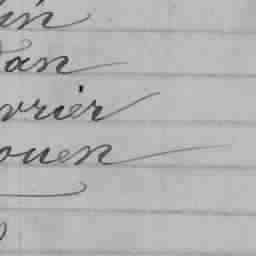 in
an
vrier
ouen